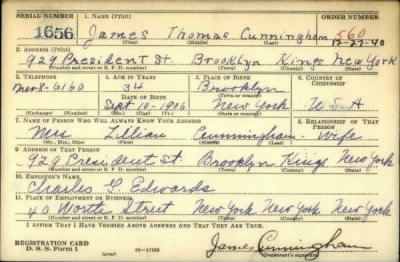 SERIAL NUMBER 1. NAME (Print) ORDER NUMBER
1656 James Thomas Cunningham 560
(First) (Middle) (Last) 12-27-40
2. ADDRESS (Print)
929 President St. Brooklyn Kings New York
(Number and street or R. F. D. number) (Town) (County) (State)
3. TELEPHONE 4. AGE IN YEARS 5. PLACE OF BIRTH 6. COUNTRY OF CITIZENSHIP
8-6160 34 Brooklyn
DATE OF BIRTH (Town or county)
Sept 10-1906 New York U S A
(Exchange) (Number) (Mo.) (Day) (Yr.) (State or country)
7. NAME OF PERSON WHO WILL ALWAYS KNOW YOUR ADDRESS 8. RELATIONSHIP OF THAT PERSON
Mrs Lillian Cunningham - Wife
(Mr., Mrs., Miss) (First) (Middle) (Last)
9. ADDRESS OF THAT PERSON
929 President St. Brooklyn Kings New York
(Number and street or R. F. D. number) (Town) (County) (State)
10. EMPLOYER'S NAME
Charles G. Edwards
11. PLACE OF EMPLOYMENT OR BUSINESS
40 Worth Street New York New York New York
(Number and street or R. F. D. number) (Town) (County) (State)
I AFFIRM THAT I HAVE VERIFIED ABOVE ANSWERS AND THAT THEY ARE TRUE.
REGISTRATION CARD
D. S. S. Form 1 James Cunningham
(Registrant's signature)